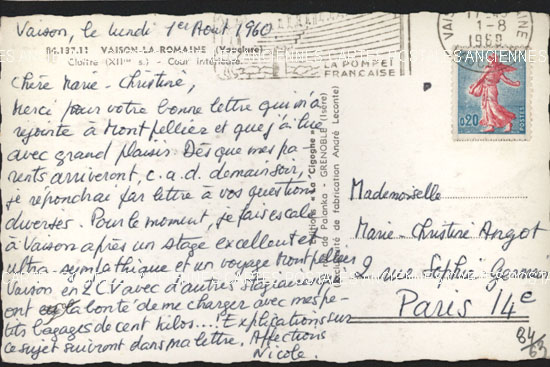 Vaison, le lundi 1er Août 1960
84.137.11 VAISON-LA-ROMAINE (Vaucluse)
Cloître (XIIme s.) - Cour intérieure
Chère Marie-Christine,
Merci pour votre bonne lettre qui m'a
rejointe à Montpellier et que j'ai lue
avec grand plaisir. Dès que mes pa-
rents arriveront, c.a.d. demain soir,
je répondrai par lettre à vos questions
diverses. Pour le moment, je fais escale
à Vaison après un stage excellent et
ultra-sympathique et un voyage Montpellier
Vaison en 2CV avec d'autres stagiaires qui
ont la bonté de me charger avec mes pe-
tits bagages de cent kilos.... Explications sur
ce sujet suivront dans ma lettre. Affections
Nicole.
Editions "La Cigogne"
de Palanka - GRENOBLE (Isère)
de fabrication André Leconte
LA POMPEI
FRANÇAISE
VAISON
1-8
1960
0,20
POSTES
Mademoiselle
Marie-Christine Angot
2 rue Sophie Germain
Paris 14e
84